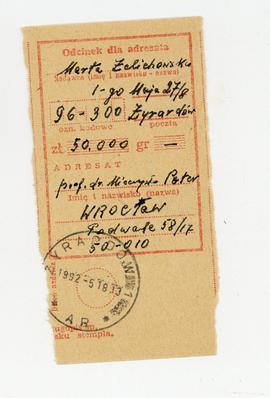 Odcinek dla adresata
Marta Zelichowska
nadawca (imię i nazwisko - nazwa)
1-go Maja 27/8
96-300 Żyrardów
ozn. kodowe poczta
zł 50.000 gr —
ADRESAT
prof. dr Mieczysław Pater
Imię i nazwisko (nazwa)
WROCŁAW
Podwale 58/17
50-010
ŻYRARDÓW 1
1992 -5 18
AR
sku stempla.